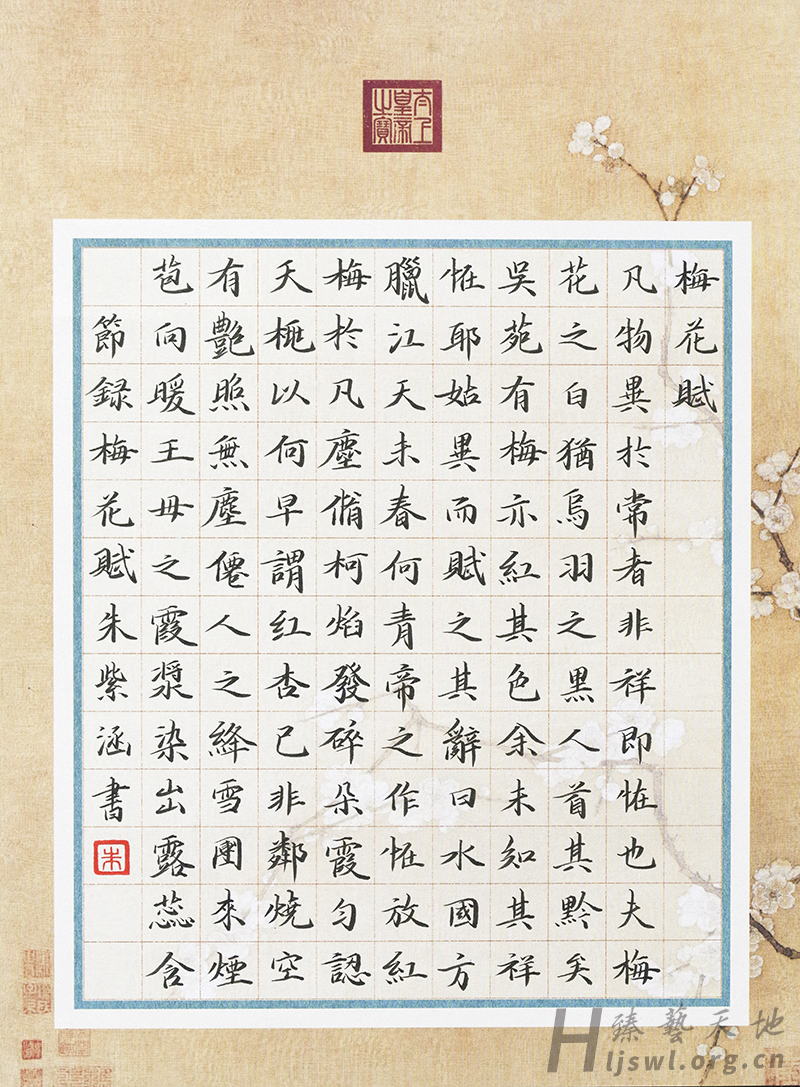 太上
皇帝
之寶
梅花賦
凡物異於常者非祥即恠也夫梅
花之白猶烏羽之黑人首其黔矣
吳苑有梅亦紅其色余未知其祥
恠耶姑異而賦之其辭曰水國方
臘江天未春何青帝之作恠放紅
梅於凡塵脩柯焰發碎朵霞勻認
夭桃以何早謂红杏已非鄰燒空
有艷照無塵僊人之絳雪團來煙
苞向暖王母之霞漿染出露蕊含
節録梅花賦朱紫涵書
朱
臻藝天地
Hljswl.org.cn